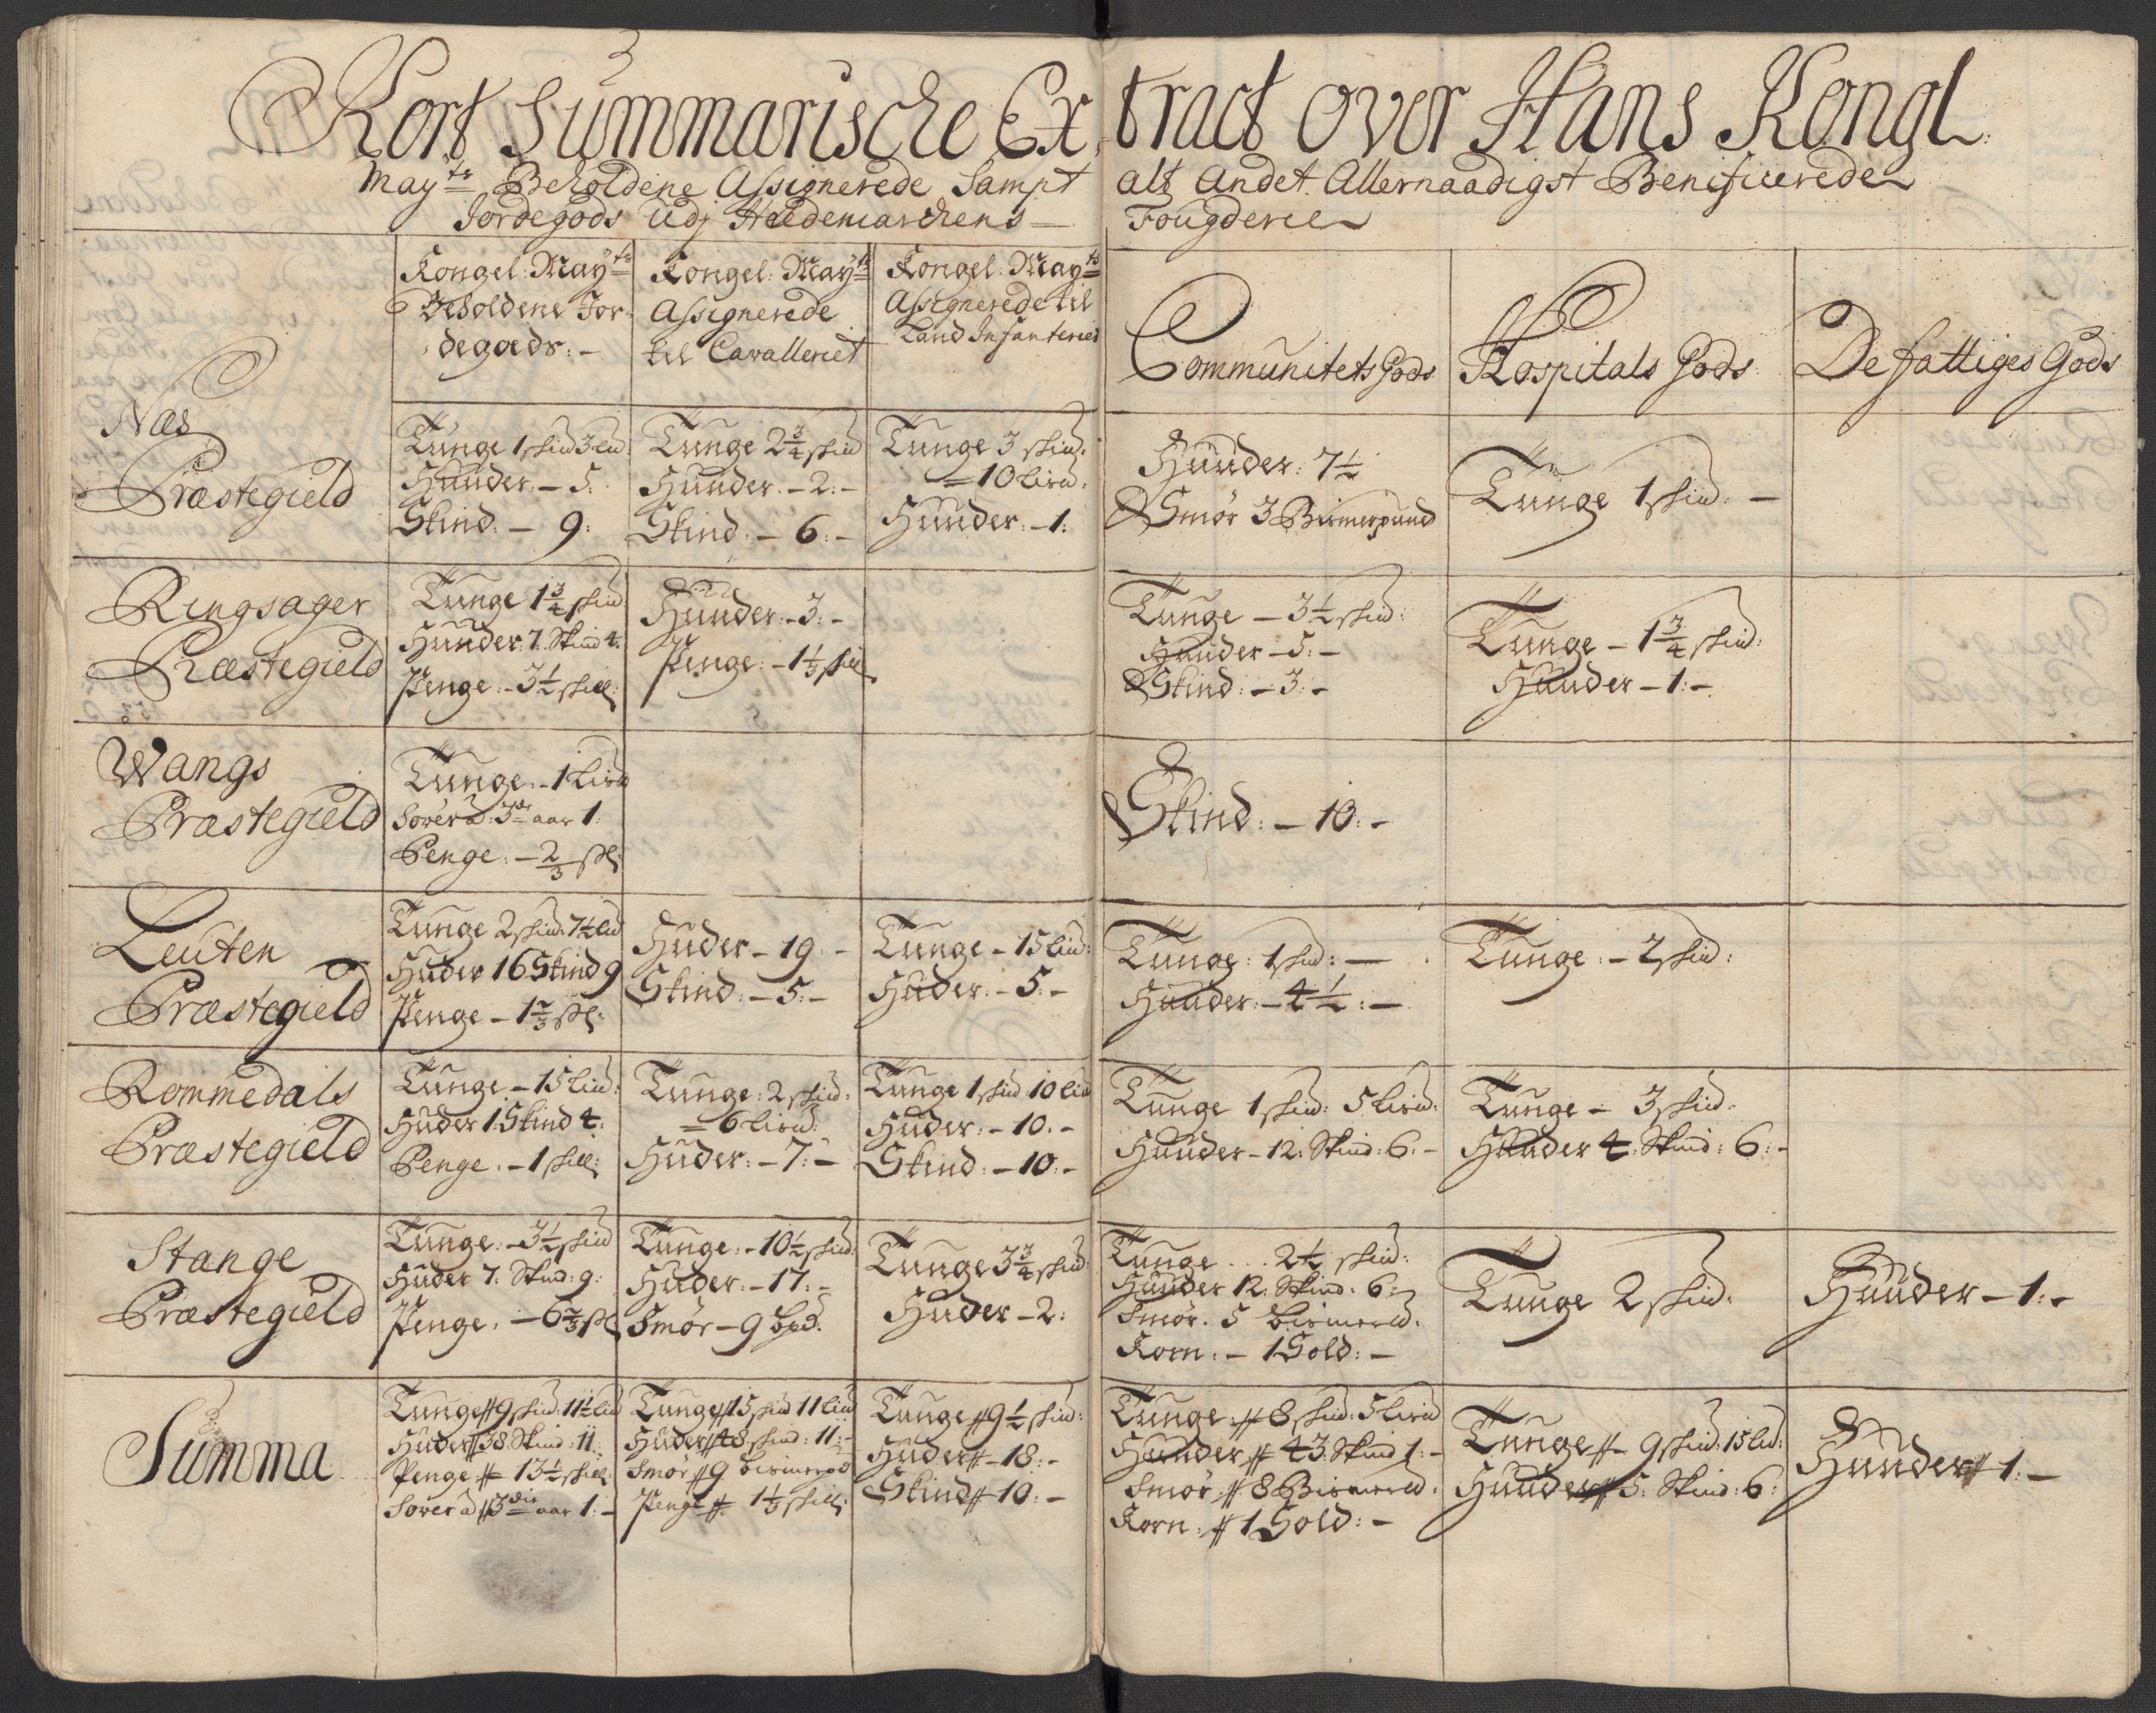 Kort Summarische Extract over Hans Kongl:
Mayts Beholdene Assignerede Sampt alt Andet Allernaadigst Beneficerede
Jordegods Udj Hedemarchens Fougderie
Kongel: Mayts
Beholdene Jor-
degods: -
Kongel: Mayts
Assignerede
til Cavalleriet
Kongel: Mayts
Assignerede til
Land Infanteriet
Communitets Gods
Hospitals Gods
De fattiges Gods
Næs
Præstegield
Tunge 1 skud 3 lud
Huuder - 5:
Skind: - 9:
Tunge 2 3/4 skud
Huuder: - 2: -
Skind: - 6: -
Tunge 3 skud:
= 10 lisd:
Huuder: - 1:
Huuder: 7 1/2
Smör 3 Bismerpund
Tunge 1 skud: -
Ringsager
Præstegield
Tunge 1 3/4 skud
Huuder 7. Skind 4:
Penge: - 3 1/2 skill:
Huuder: - 3: -
Penge: - 1 1/3 skill
Tunge - 3 1/2 skud:
Huuder - 5: -
Skind: - 3: -
Tunge - 1 3/4 skud:
Huuder - 1: -
Wangs
Præstegield
Tunge: - 1 lisd
Söver a: 3die aar 1:
Penge: - 2/3 sk:
Skind: - 10: -
Leuten
Præstegield
Tunge 2 skud: 7 1/2 lud
Huder 16 Skind 9
Penge - 1 2/3 sk:
Huder - 19: -
Skind: - 5: -
Tunge - 15 lud:
Huder: - 5: -
Tunge: 1 skud: -
Huuder: - 4 1/2: -
Tunge: - 2 skud:
Rommedals
Præstegield
Tunge - 15 lud:
Huder 1. Skind 4:
Penge: - 1 skill:
Tunge: 2 skud:
= 6 lisd:
Huder: - 7: -
Tunge 1 skud 10 lud
Huder: - 10: -
Skind: - 10: -
Tunge 1 skud: 5 lisd:
Huuder - 12: Skind: 6: -
Tunge - 3 skud:
Huuder 4: Skind: 6: -
Stange
Præstegield
Tunge: - 3 1/2 skud
Huder 7: Skind: 9:
Penge: - 6 2/3 sk
Tunge: - 10 1/2 skud:
Huder: - 17: -
Smör - 9 bpd:
Tunge 3 3/4 skud:
Huder - 2:
Tunge ... 2 1/2 skud:
Huuder 12: Skind: 6:
Smör: 5 bismerd:
Korn: - 1 Sold: -
Tunge 2 skud:
Huuder - 1: -
Summa
Tunge # 9 skud: 11 1/2 lud
Huder # 38 Skind: 11:
Penge # 13 1/2 skill:
Söver a # 3die aar 1: -
Tunge # 15 skud 11 lud
Huder # 48 skind: 11: -
Smör # 9 bismerpd
Penge # 1 1/3 skill:
Tunge # 9 1/2 skud:
Huder # - 18: -
Skind # 10: -
Tunge # 8 skud: 5 lisd
Huuder # 43 Skind 1: -
Smör # 8 Bismerd:
Korn: # 1 Sold: -
Tunge # 9 skud: 15 lud:
Huuder # 5: Skind: 6:
Huuder # 1: -